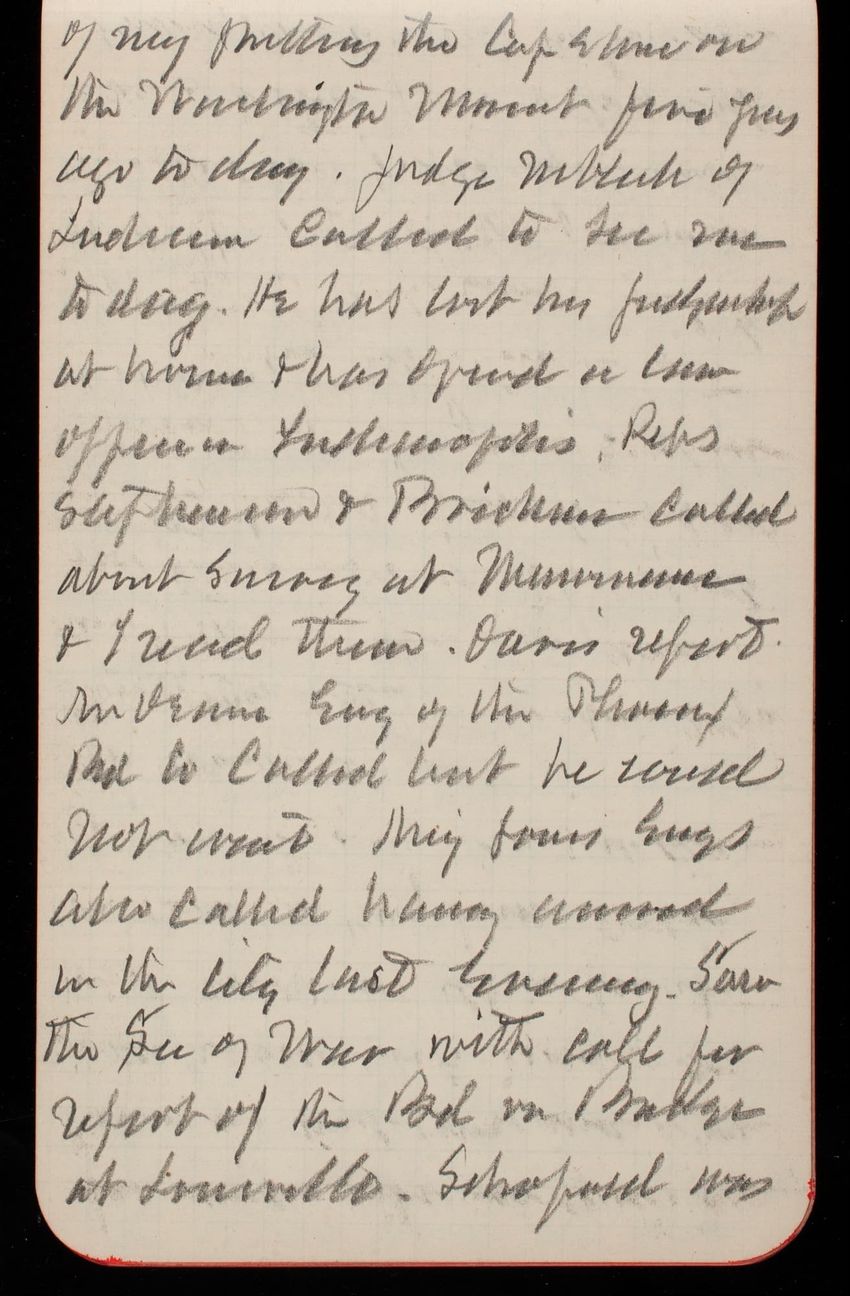 of my putting the Cap Stone on
the Washington Monument five years
ago to day. Judge Niblack of
Indiana Called to See me
to day. He has lost his Judgeship
at home & has opened a law
office in Indianapolis. Reps
Stephenson & Brickner Called
about Survey at Menominee
& I read them. Davis report.
Anderson Eng of the Phoenix
Bd Co Called but he could
not wait. My four Engs
also Called having arrived
in the City last Evening. Saw
the Sec of War with call for
report of the Bd on Bridge
at Louisville. Schofield was